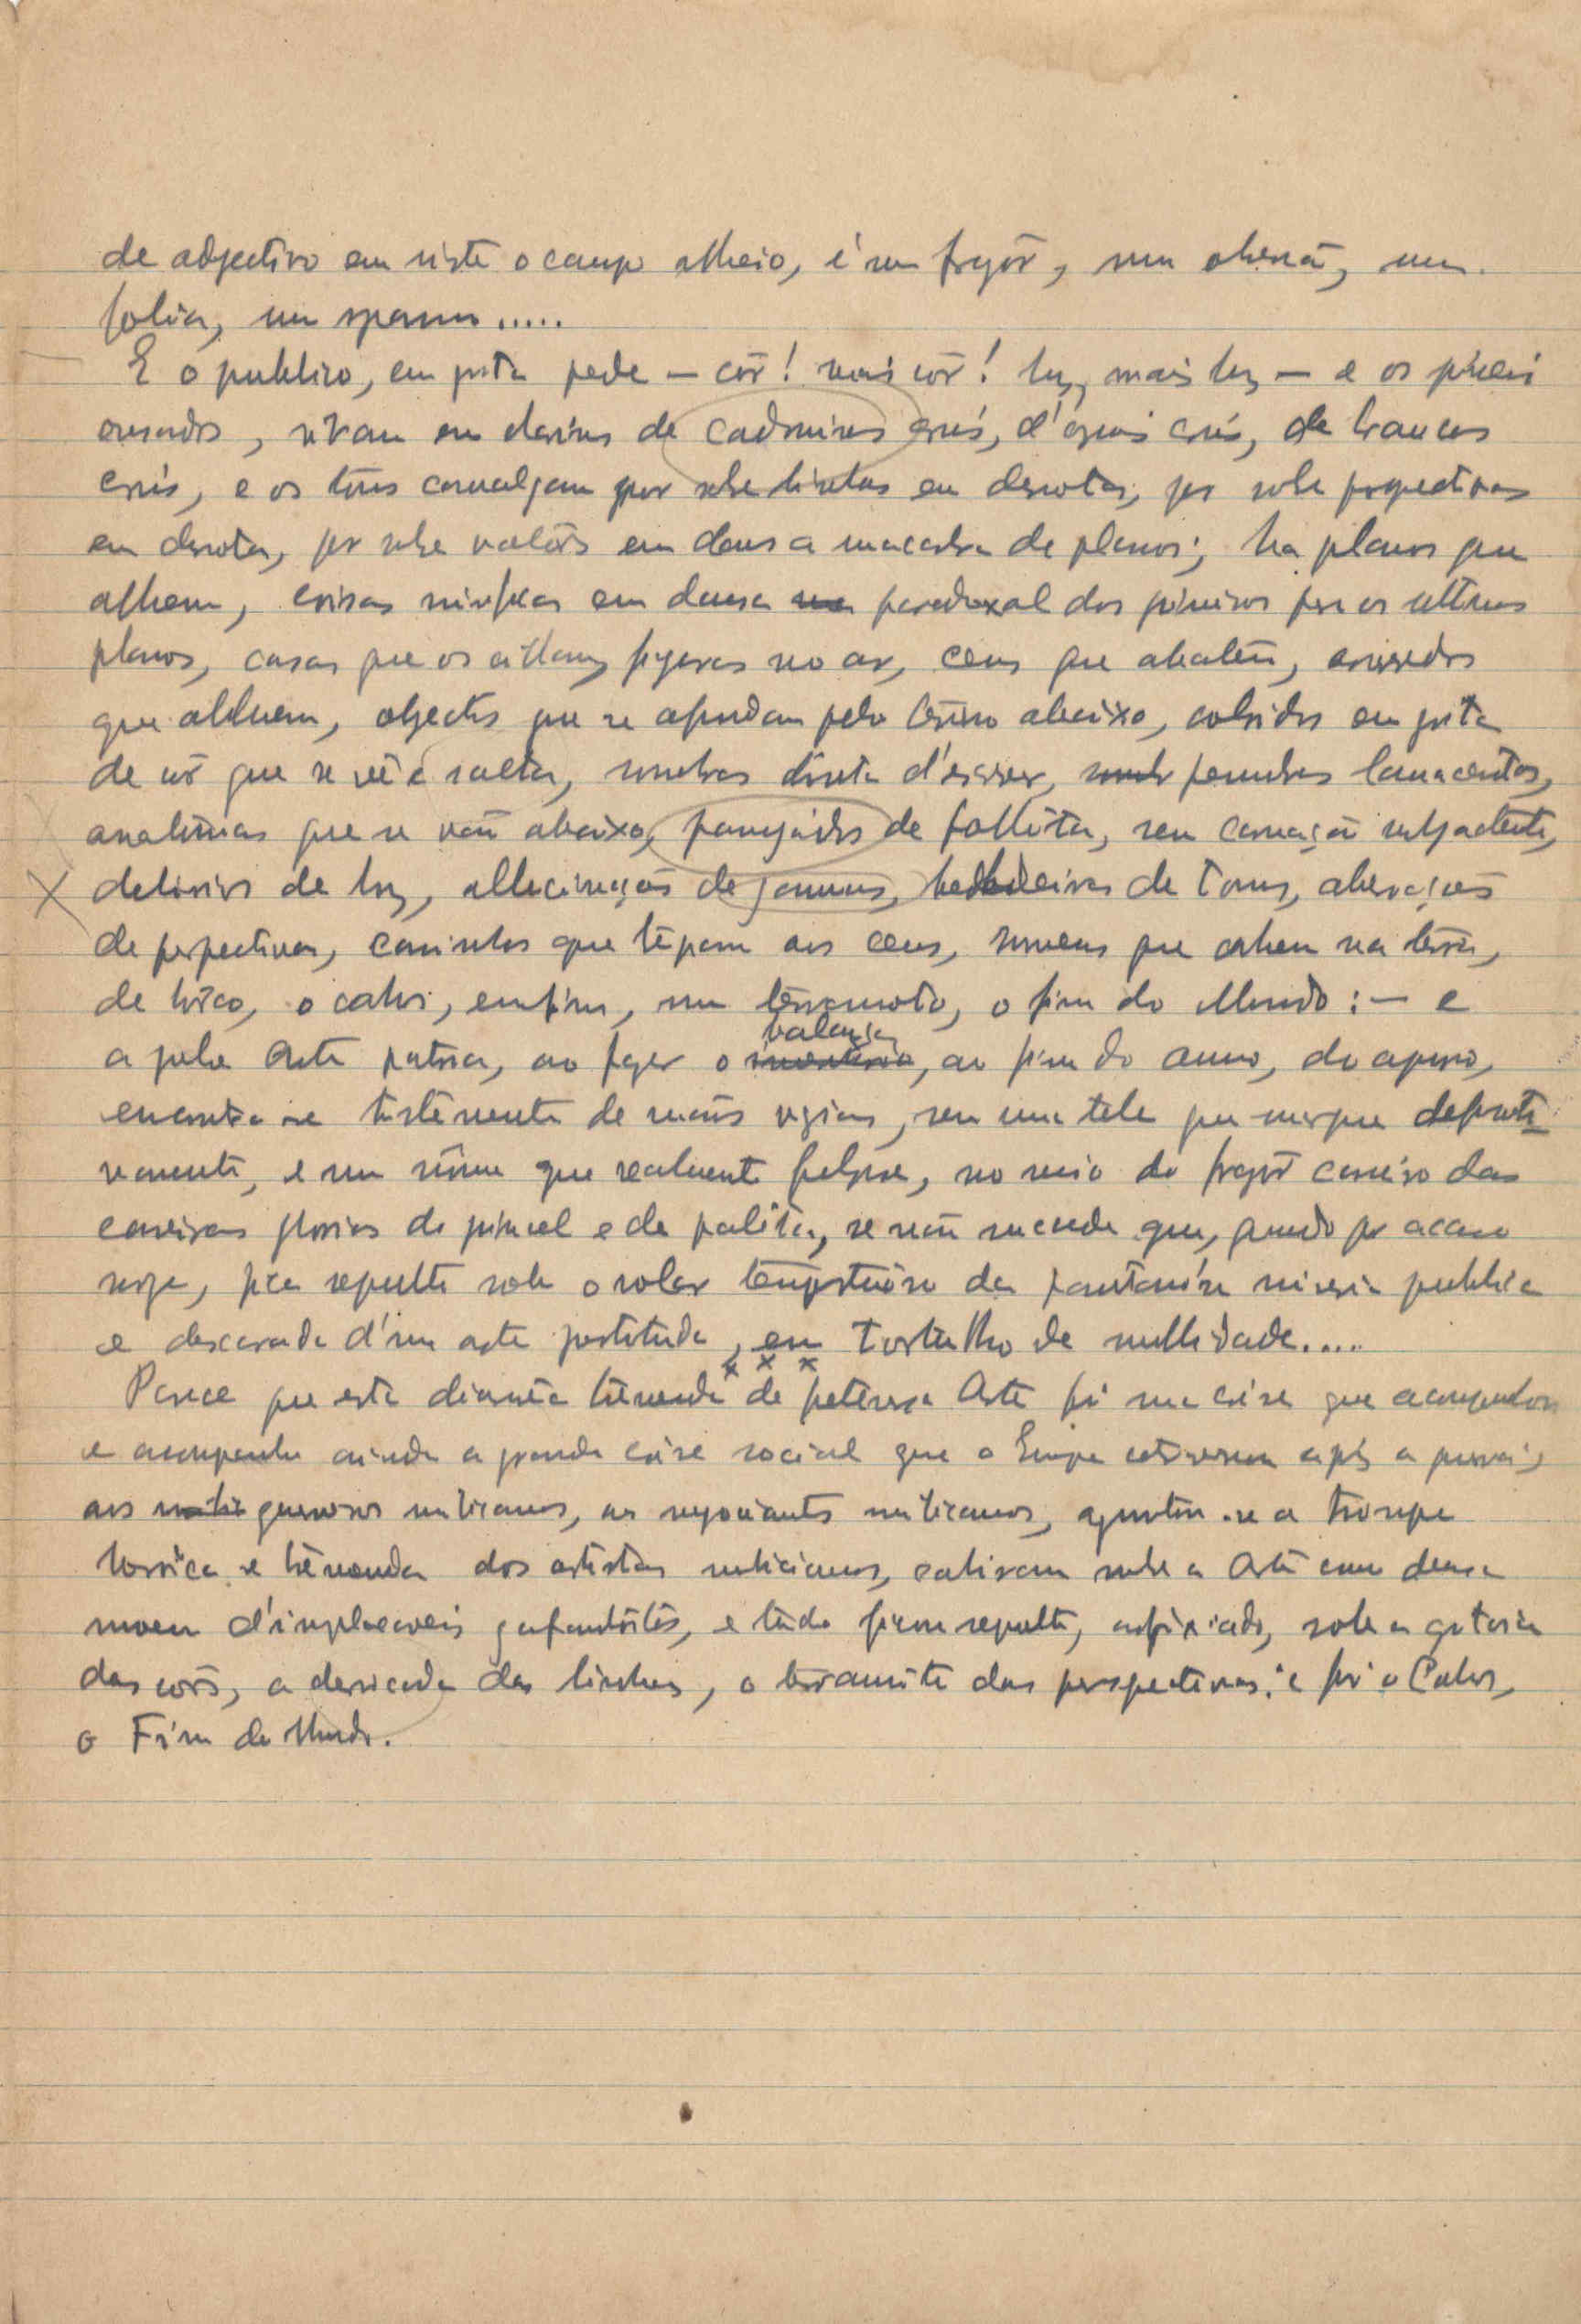 de adjectivo em riste o campo alheio, é um fragôr, um alvará, um
folia, um spasmo.....
E o publico, em grita pede — côr! mais côr! luz, mais luz — e os pinceis
ousados, vibram em delirios de cadmiums crús, d'ocres crús, de brancos
crús, e os tons cavalgam por sobre tintas em derrota, por sobre prespectivas
em derrota, por sobre valôres em dansa macabra de planos; ha planos que
alhem, coisas em dansa paradoxal dos primeiros para os ultimos
planos, casas que oscillam, figuras no ar, ceus que abatem, arvoredos
que alluem, objectos que se afundam pelo terreno abaixo, coloridos em grita
de côr que se vê e salta, sombras tinta d'escrever, penumbras lamacentas,
anatomias que se vão abaixo, panejados de folheta, sem carnação subjacente,
delirios de luz, allucinações de gammas, bebedeiras de tons, aberrações
de perspectivas, caminhos que trepam aos ceus, nuvens que cahem na terra,
de borco, o cahos, emfim, um terramoto, o fim do Mundo: — e
a pobre Arte patria, ao fazer o balanço, ao fim do anno, do apuro,
encontra-se tristemente de mãos vazias, sem uma tela que marque definiti-
vamente, e um nome que realmente fulgure, no meio do fragôr caseiro das
caseiras glorias do pincel e da palêta, se não succede que, quando por acaso
surge, fica sepulto sob o solar tempestuoso da miseria publica
e descarada d'um arte prostituida, em tortulho de nullidade....
x x x
Parece que esta diarrêa tremenda de pelintra Arte foi uma crise que acompanhou
e acompanha ainda a grande crise social que a Europa atravessa após a guerra;
aos guerreiros milicianos, aos negociantes milicianos, ajuntou-se a troupe
tôrrica e tremenda dos artistas milicianos, cahiram sobre a Arte como densa
nuvem d'implacaveis gafanhôtos, e tudo ficou sepulto, asfixiado, sob a gritaria
das côres, a derrocada das linhas, o terramoto das perspectivas: e foi o Cahos,
o Fim do Mundo.